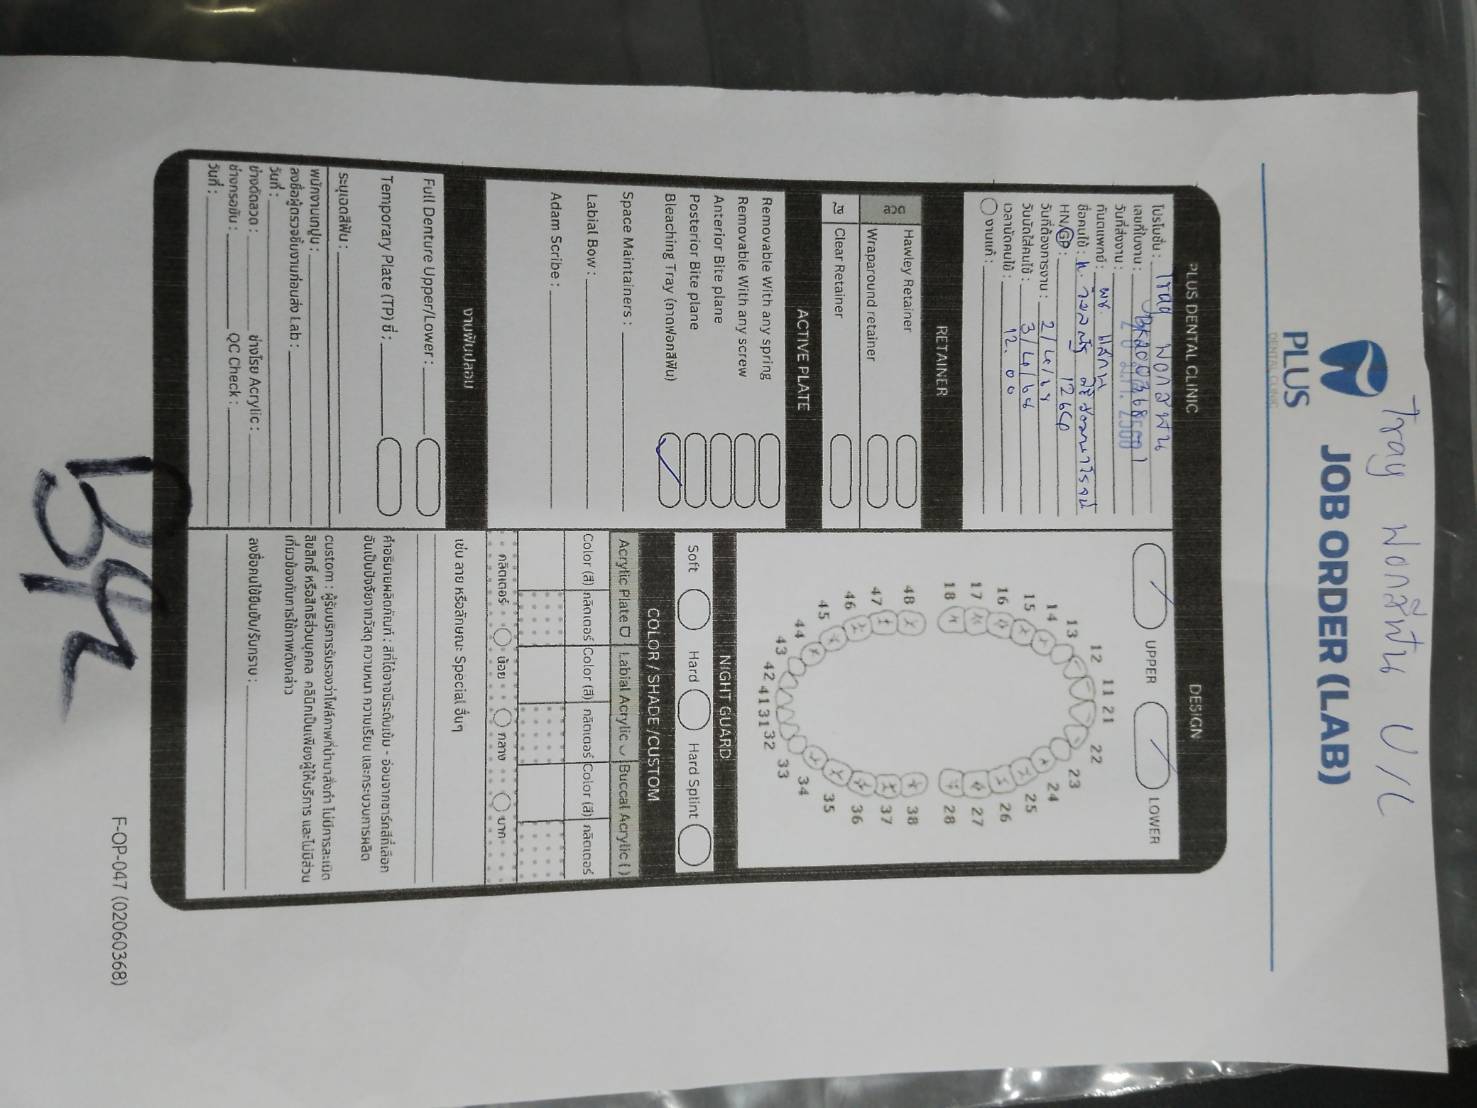 Tray ฟอกสีฟัน U/L
PLUS
DENTAL CLINIC
JOB ORDER (LAB)
PLUS DENTAL CLINIC
โปรโมชั่น : Tray ฟอกสีฟัน
เลขที่ใบงาน :
วันที่ส่งงาน :
ทันตแพทย์ : พช.
ชื่อคนไข้ : น.
HN/GP :
วันที่ต้องการงาน :
วันนัดใส่คนไข้ : 3/4/68
เวลานัดคนไข้ : 12.00
งานแก้ :
RETAINER
ลวด
Hawley Retainer
Wraparound retainer
ใส
Clear Retainer
ACTIVE PLATE
Removable With any spring
Removable With any screw
Anterior Bite plane
Posterior Bite plane
Bleaching Tray (ถาดฟอกสีฟัน)
Space Maintainers :
Labial Bow :
Adam Scribe :
งานฟันปลอม
Full Denture Upper/Lower :
Temporary Plate (TP) ซี่ :
ระบุเฉดสีฟัน :
พนักงานเทปูน :
ลงชื่อผู้ตรวจชิ้นงานก่อนส่ง Lab :
วันที่ :
ช่างดัดลวด : ช่างโรย Acrylic :
ช่างกรอขัด : QC Check :
วันที่ :
DESIGN
UPPER LOWER
18 17 16 15 14 13 12 11 21 22 23 24 25 26 27 28
48 47 46 45 44 43 42 41 31 32 33 34 35 36 37 38
NIGHT GUARD
Soft Hard Hard Splint
COLOR / SHADE /CUSTOM
Acrylic Plate Labial Acrylic Buccal Acrylic ( )
Color (สี) กลิตเตอร์ Color (สี) กลิตเตอร์ Color (สี) กลิตเตอร์
กลิตเตอร์ น้อย กลาง มาก
เช่น ลาย หรือลักษณะ Special อื่นๆ
คำอธิบายผลิตภัณฑ์ : สีที่ได้อาจมีระดับเข้ม - อ่อนจากชาร์กสีที่เลือก
อันเป็นปัจจัยจากวัสดุ ความหนา ความเรียบ และกระบวนการผลิต
custom : ผู้รับบริการรับรองว่าไฟล์ภาพที่นำมาสั่งทำ ไม่มีการละเมิด
ลิขสิทธิ์ หรือสิทธิส่วนบุคคล คลินิกเป็นเพียงผู้ให้บริการ และไม่มีส่วน
เกี่ยวข้องกับการใช้ภาพดังกล่าว
ลงชื่อคนไข้ยืนยัน/รับทราบ :
F-OP-047 (02060368)